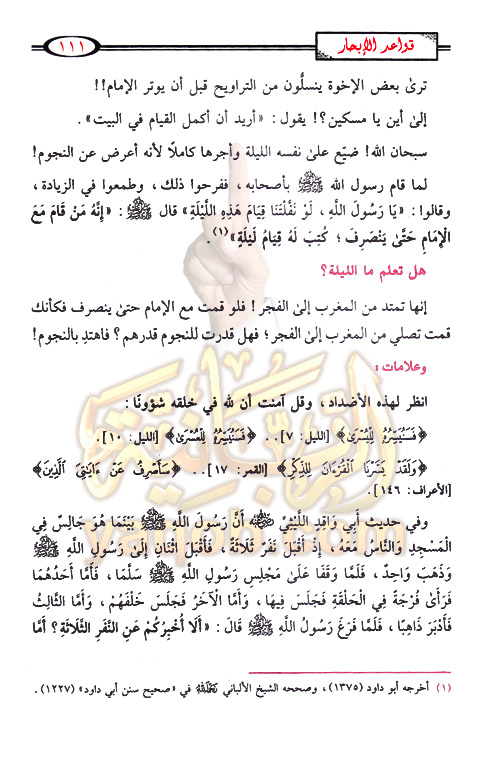 قواعد الإبحار
١١١
ترى بعض الإخوة ينسلُّون من التراويح قبل أن يوتر الإمام!!
إلى أين يا مسكين؟! يقول: «أريد أن أكمل القيام في البيت».
سبحان الله! ضيّع على نفسه الليلة وأجرها كاملًا لأنه أعرض عن النجوم!
لما قام رسول الله ﷺ بأصحابه، ففرحوا ذلك، وطمعوا في الزيادة،
وقالوا: «يَا رَسُولَ اللهِ، لَوْ نَفَّلْتَنَا قِيَامَ هَذِهِ اللَّيْلَةِ» قال ﷺ: «إِنَّهُ مَنْ قَامَ مَعَ
الْإِمَامِ حَتَّىٰ يَنْصَرِفَ؛ كُتِبَ لَهُ قِيَامُ لَيْلَةٍ»(١).
هل تعلم ما الليلة؟
إنها تمتد من المغرب إلى الفجر! فلو قمت مع الإمام حتى ينصرف فكأنك
قمت تصلي من المغرب إلى الفجر؛ فهل قدرت للنجوم قدرهم؟ فاهتدِ بالنجوم!
وعلامات:
انظر لهذه الأضداد، وقل آمنت أن لله في خلقه شؤونًا:
﴿فَسَنُيَسِّرُهُ لِلْيُسْرَىٰ﴾ [الليل: ٧].. ﴿فَسَنُيَسِّرُهُ لِلْعُسْرَىٰ﴾ [الليل: ١٠].
﴿وَلَقَدْ يَسَّرْنَا الْقُرْءَانَ لِلذِّكْرِ﴾ [القمر: ١٧].. ﴿سَأَصْرِفُ عَنْ ءَايَٰتِيَ الَّذِينَ﴾
[الأعراف: ١٤٦].
وفي حديث أَبِي وَاقِدٍ اللَّيْثِيِّ رضي الله عنه أَنَّ رَسُولَ اللَّهِ ﷺ بَيْنَمَا هُوَ جَالِسٌ فِي
الْمَسْجِدِ وَالنَّاسُ مَعَهُ، إِذْ أَقْبَلَ نَفَرٌ ثَلَاثَةٌ، فَأَقْبَلَ اثْنَانِ إِلَىٰ رَسُولِ اللَّهِ ﷺ
وَذَهَبَ وَاحِدٌ، فَلَمَّا وَقَفَا عَلَىٰ مَجْلِسِ رَسُولِ اللهِ ﷺ سَلَّمَا، فَأَمَّا أَحَدُهُمَا
فَرَأَىٰ فُرْجَةً فِي الْحَلْقَةِ فَجَلَسَ فِيهَا، وَأَمَّا الْآخَرُ فَجَلَسَ خَلْفَهُمْ، وَأَمَّا الثَّالِثُ
فَأَدْبَرَ ذَاهِبًا، فَلَمَّا فَرَغَ رَسُولُ اللَّهِ ﷺ قَالَ: «أَلَا أُخْبِرُكُمْ عَنِ النَّفَرِ الثَّلَاثَةِ؟ أَمَّا
(١) أخرجه أبو داود (١٣٧٥)، وصححه الشيخ الألباني رحمه الله في «صحيح سنن أبي داود» (١٢٢٧).